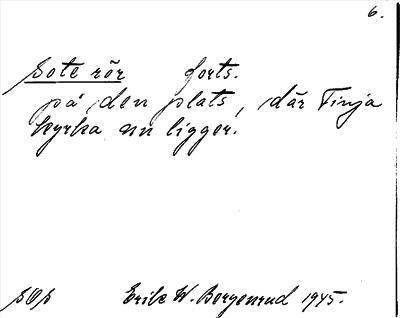 6.
Sote rör forts.
på den plats, där Tinja
kyrka nu ligger.
SOS Erik W. Borgenrud 1945.